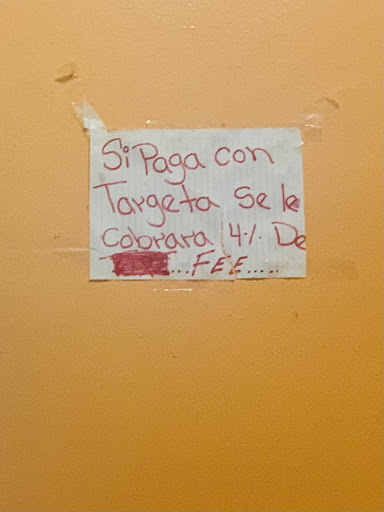 Si Paga con
Targeta Se le
Cobrara 4% De
...FEE.....